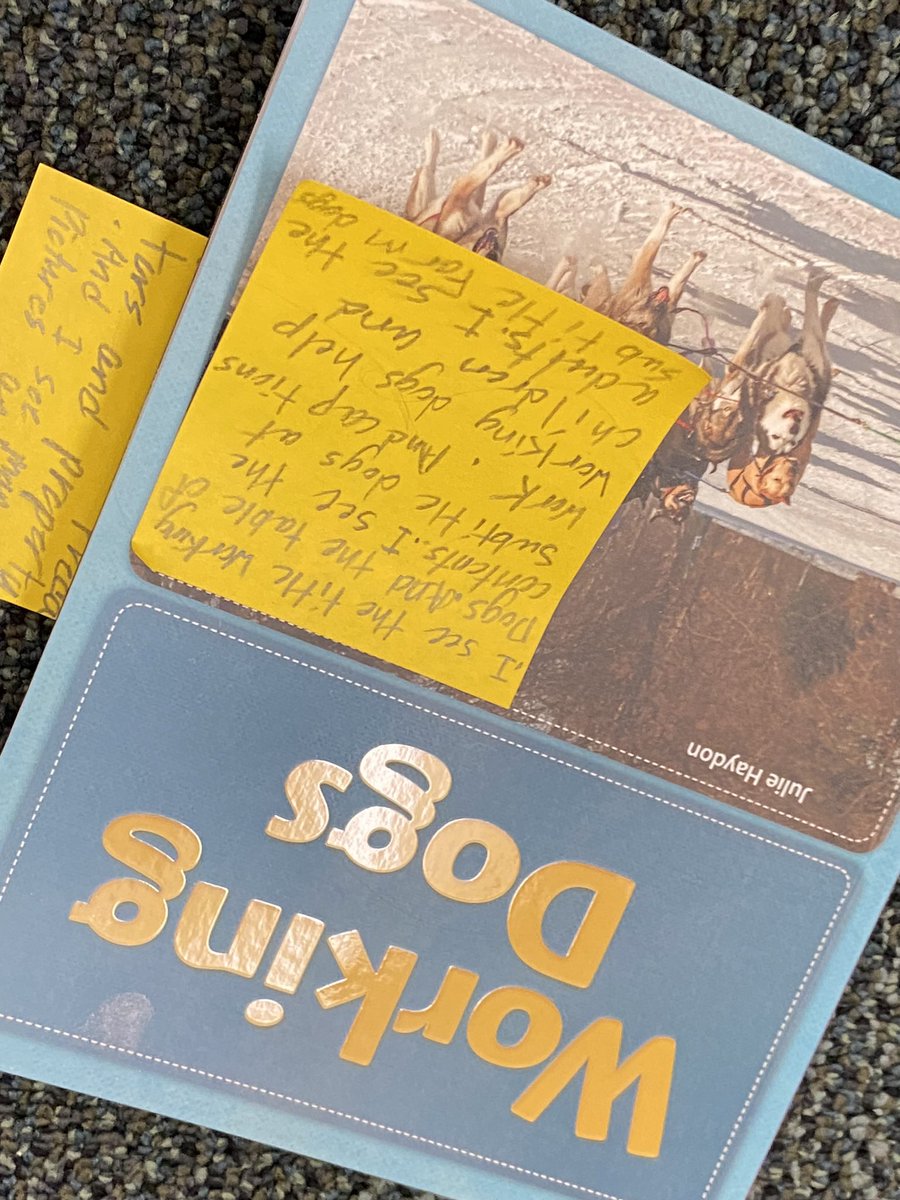 Working
Dogs
Julie Haydon
.I see the title working
Dogs. And the table of
contents. I see the
subtitle dogs at
work. And captions
working dogs help
children and
adults. I see the
subtitle Farm dogs
turs and
. And I see
Pictures